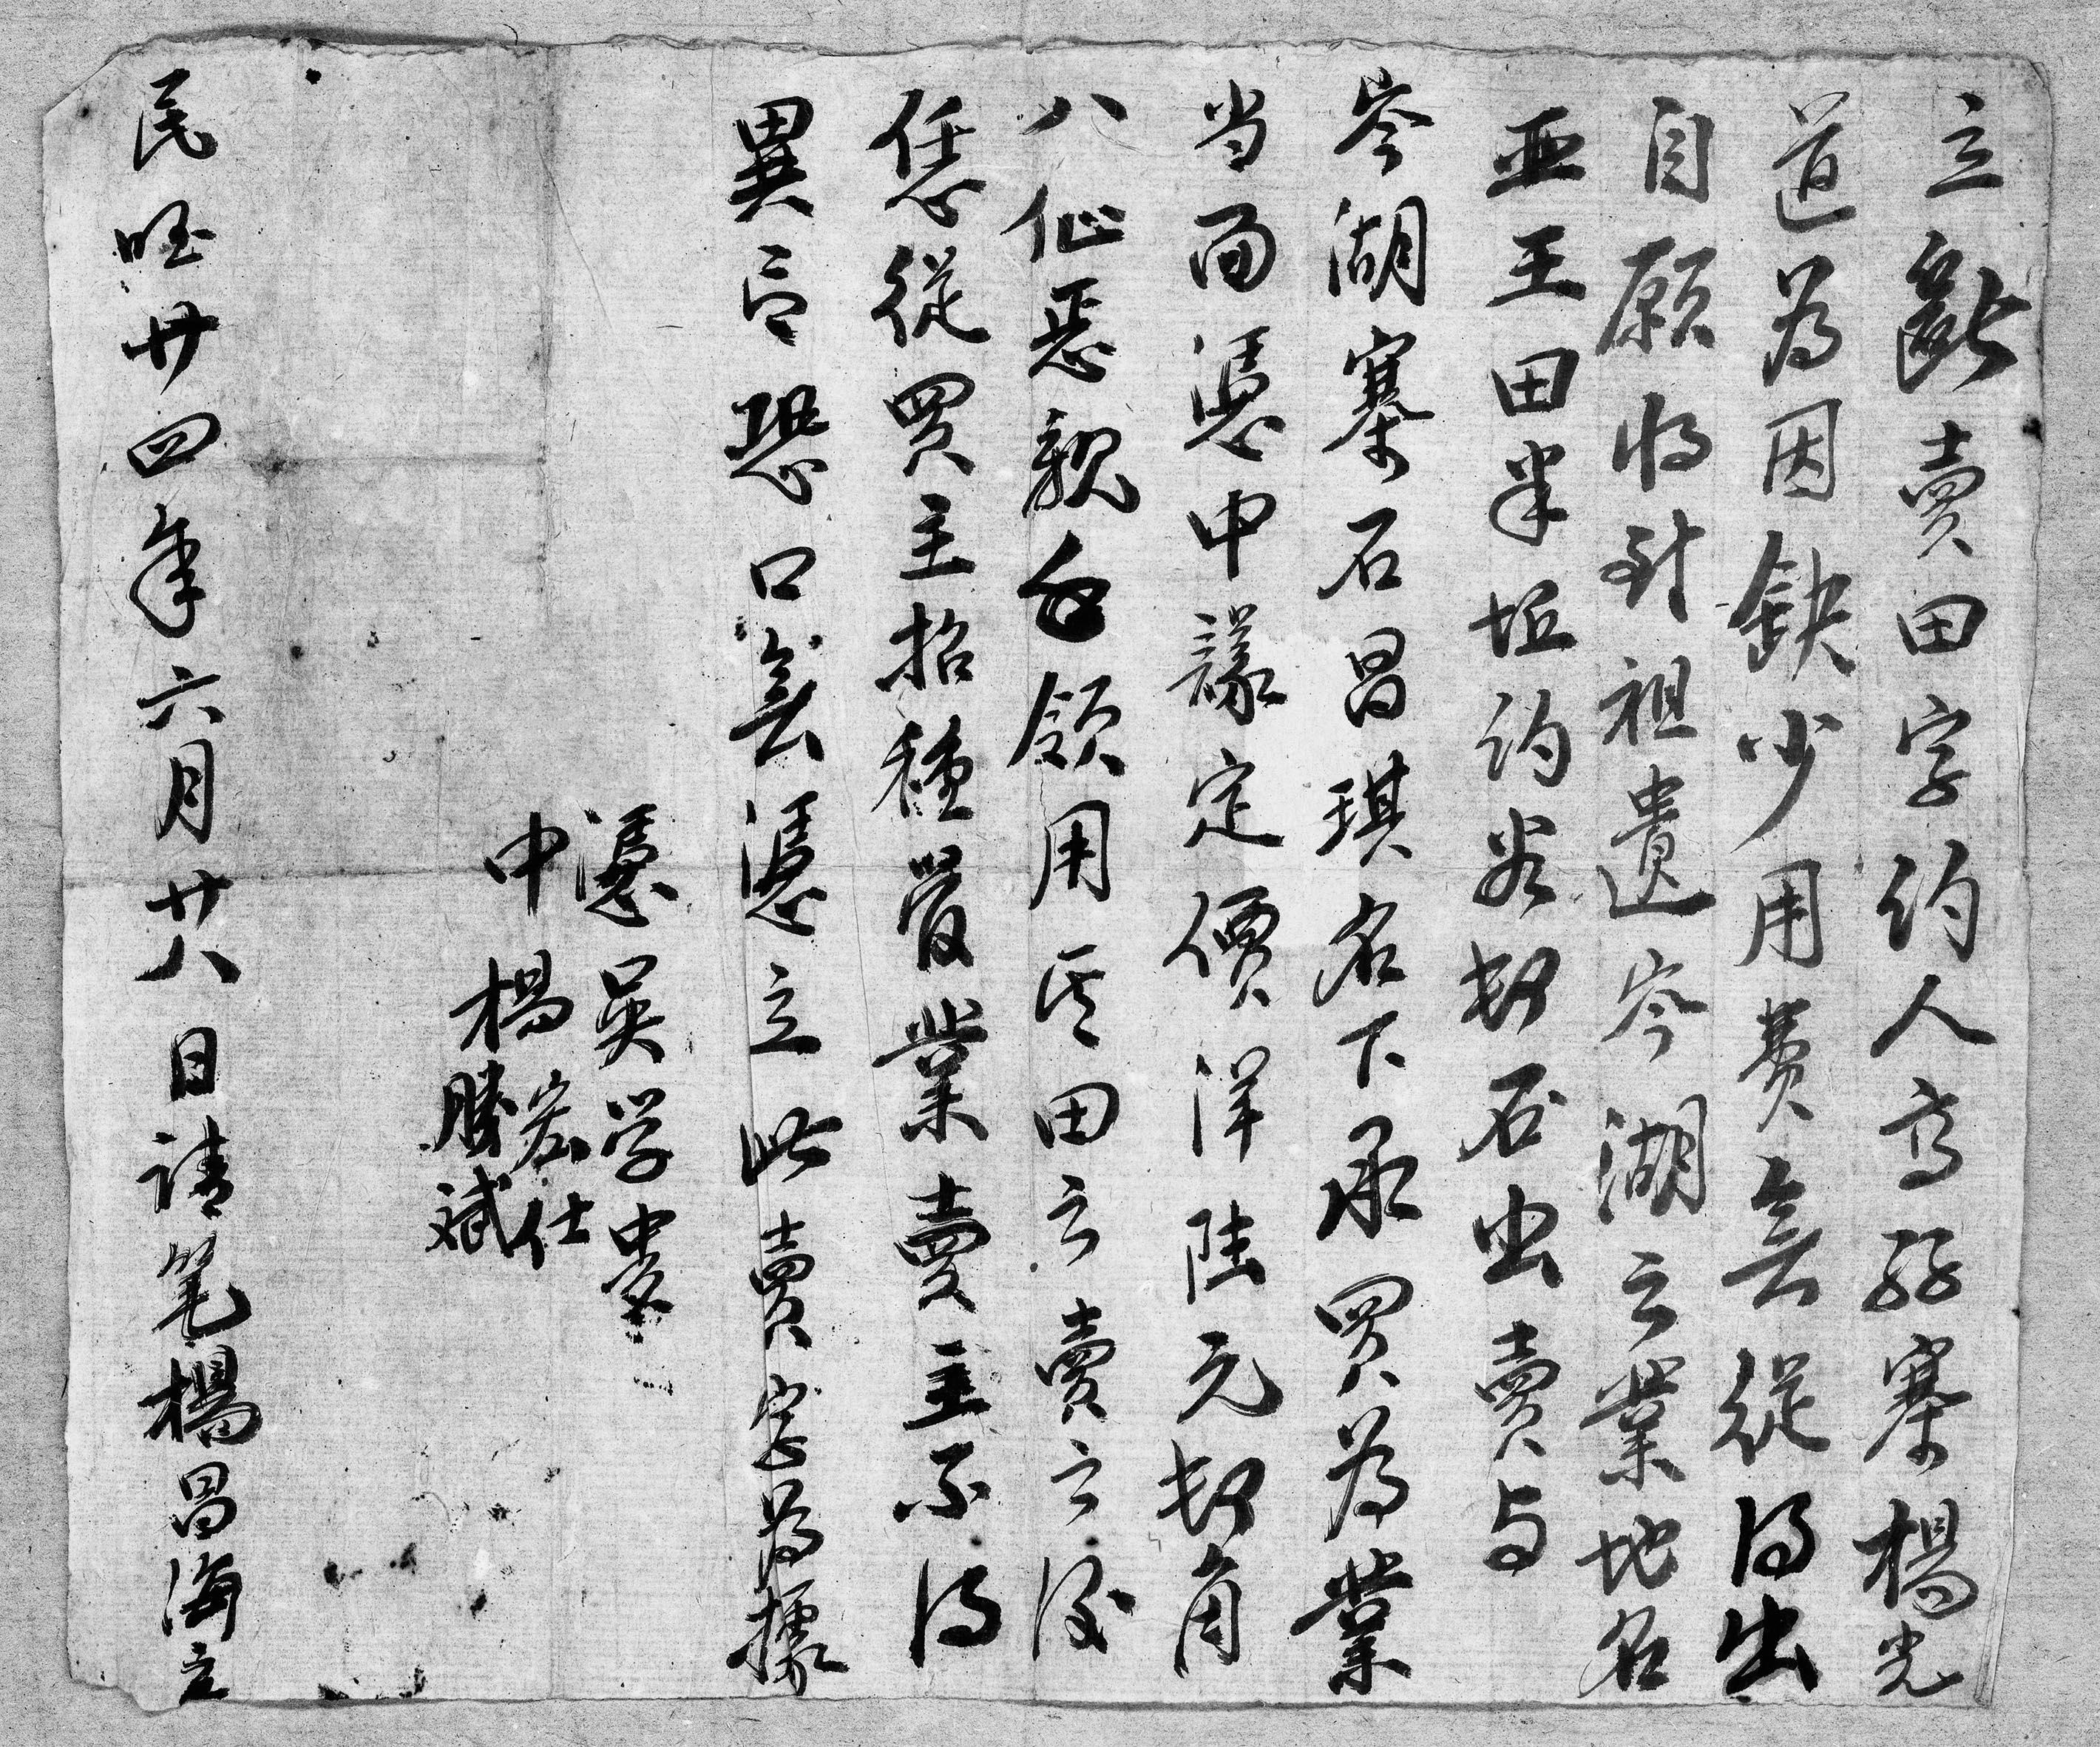 立斷賣田字約人高孖寨楊光
道為因缺少用費無從得出
自願將到祖遺岑湖之業地名
亞王田半坵約谷 石出賣與
岑湖寨石昌琪名下承買為業
当面憑中議定價洋陸元 角
八仙悉親手領用其田之賣之後
恁從買主招種管業賣主不得
異言恐口無憑立此賣字為據
憑 吳学
中 楊 宏仕
勝斌
民 廿四年六月廿八日請笔楊昌海立